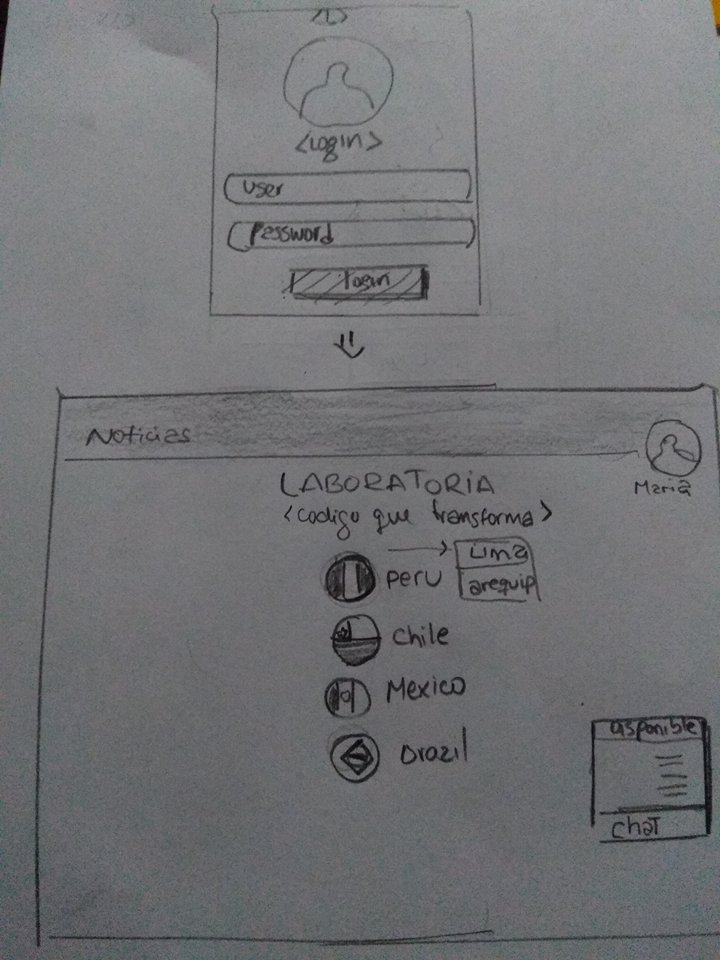 <L>
<Login>
User
Password
login
Noticias
Maria
LABORATORIA
<codigo que transforma>
Peru
Lima
arequip
chile
Mexico
Brazil
disponible
chat